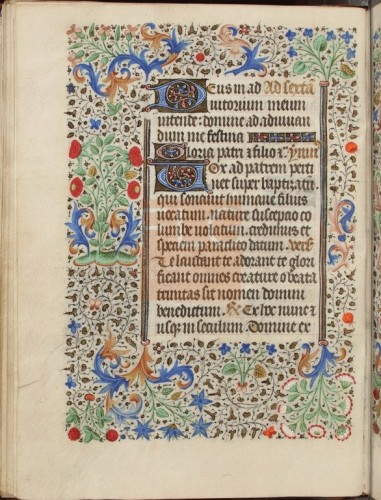 Deus in ad Ad sexta
iutorium meum
intende: domine ad adiuuan
dum me festina
Gloria patri et filio et ymnus
Vox ad patrem perti
net super baptizati
qui sonauit humane filius
uocatum nature susceptio co
lumbe uolatum credimus et
speciem paraclito datum. vers
Te laudant te adorant te glori
ficant omnes creature o beata
trinitas sit nomen domini
benedictum. Ex hoc nunc et
usq in seculum Domine ex